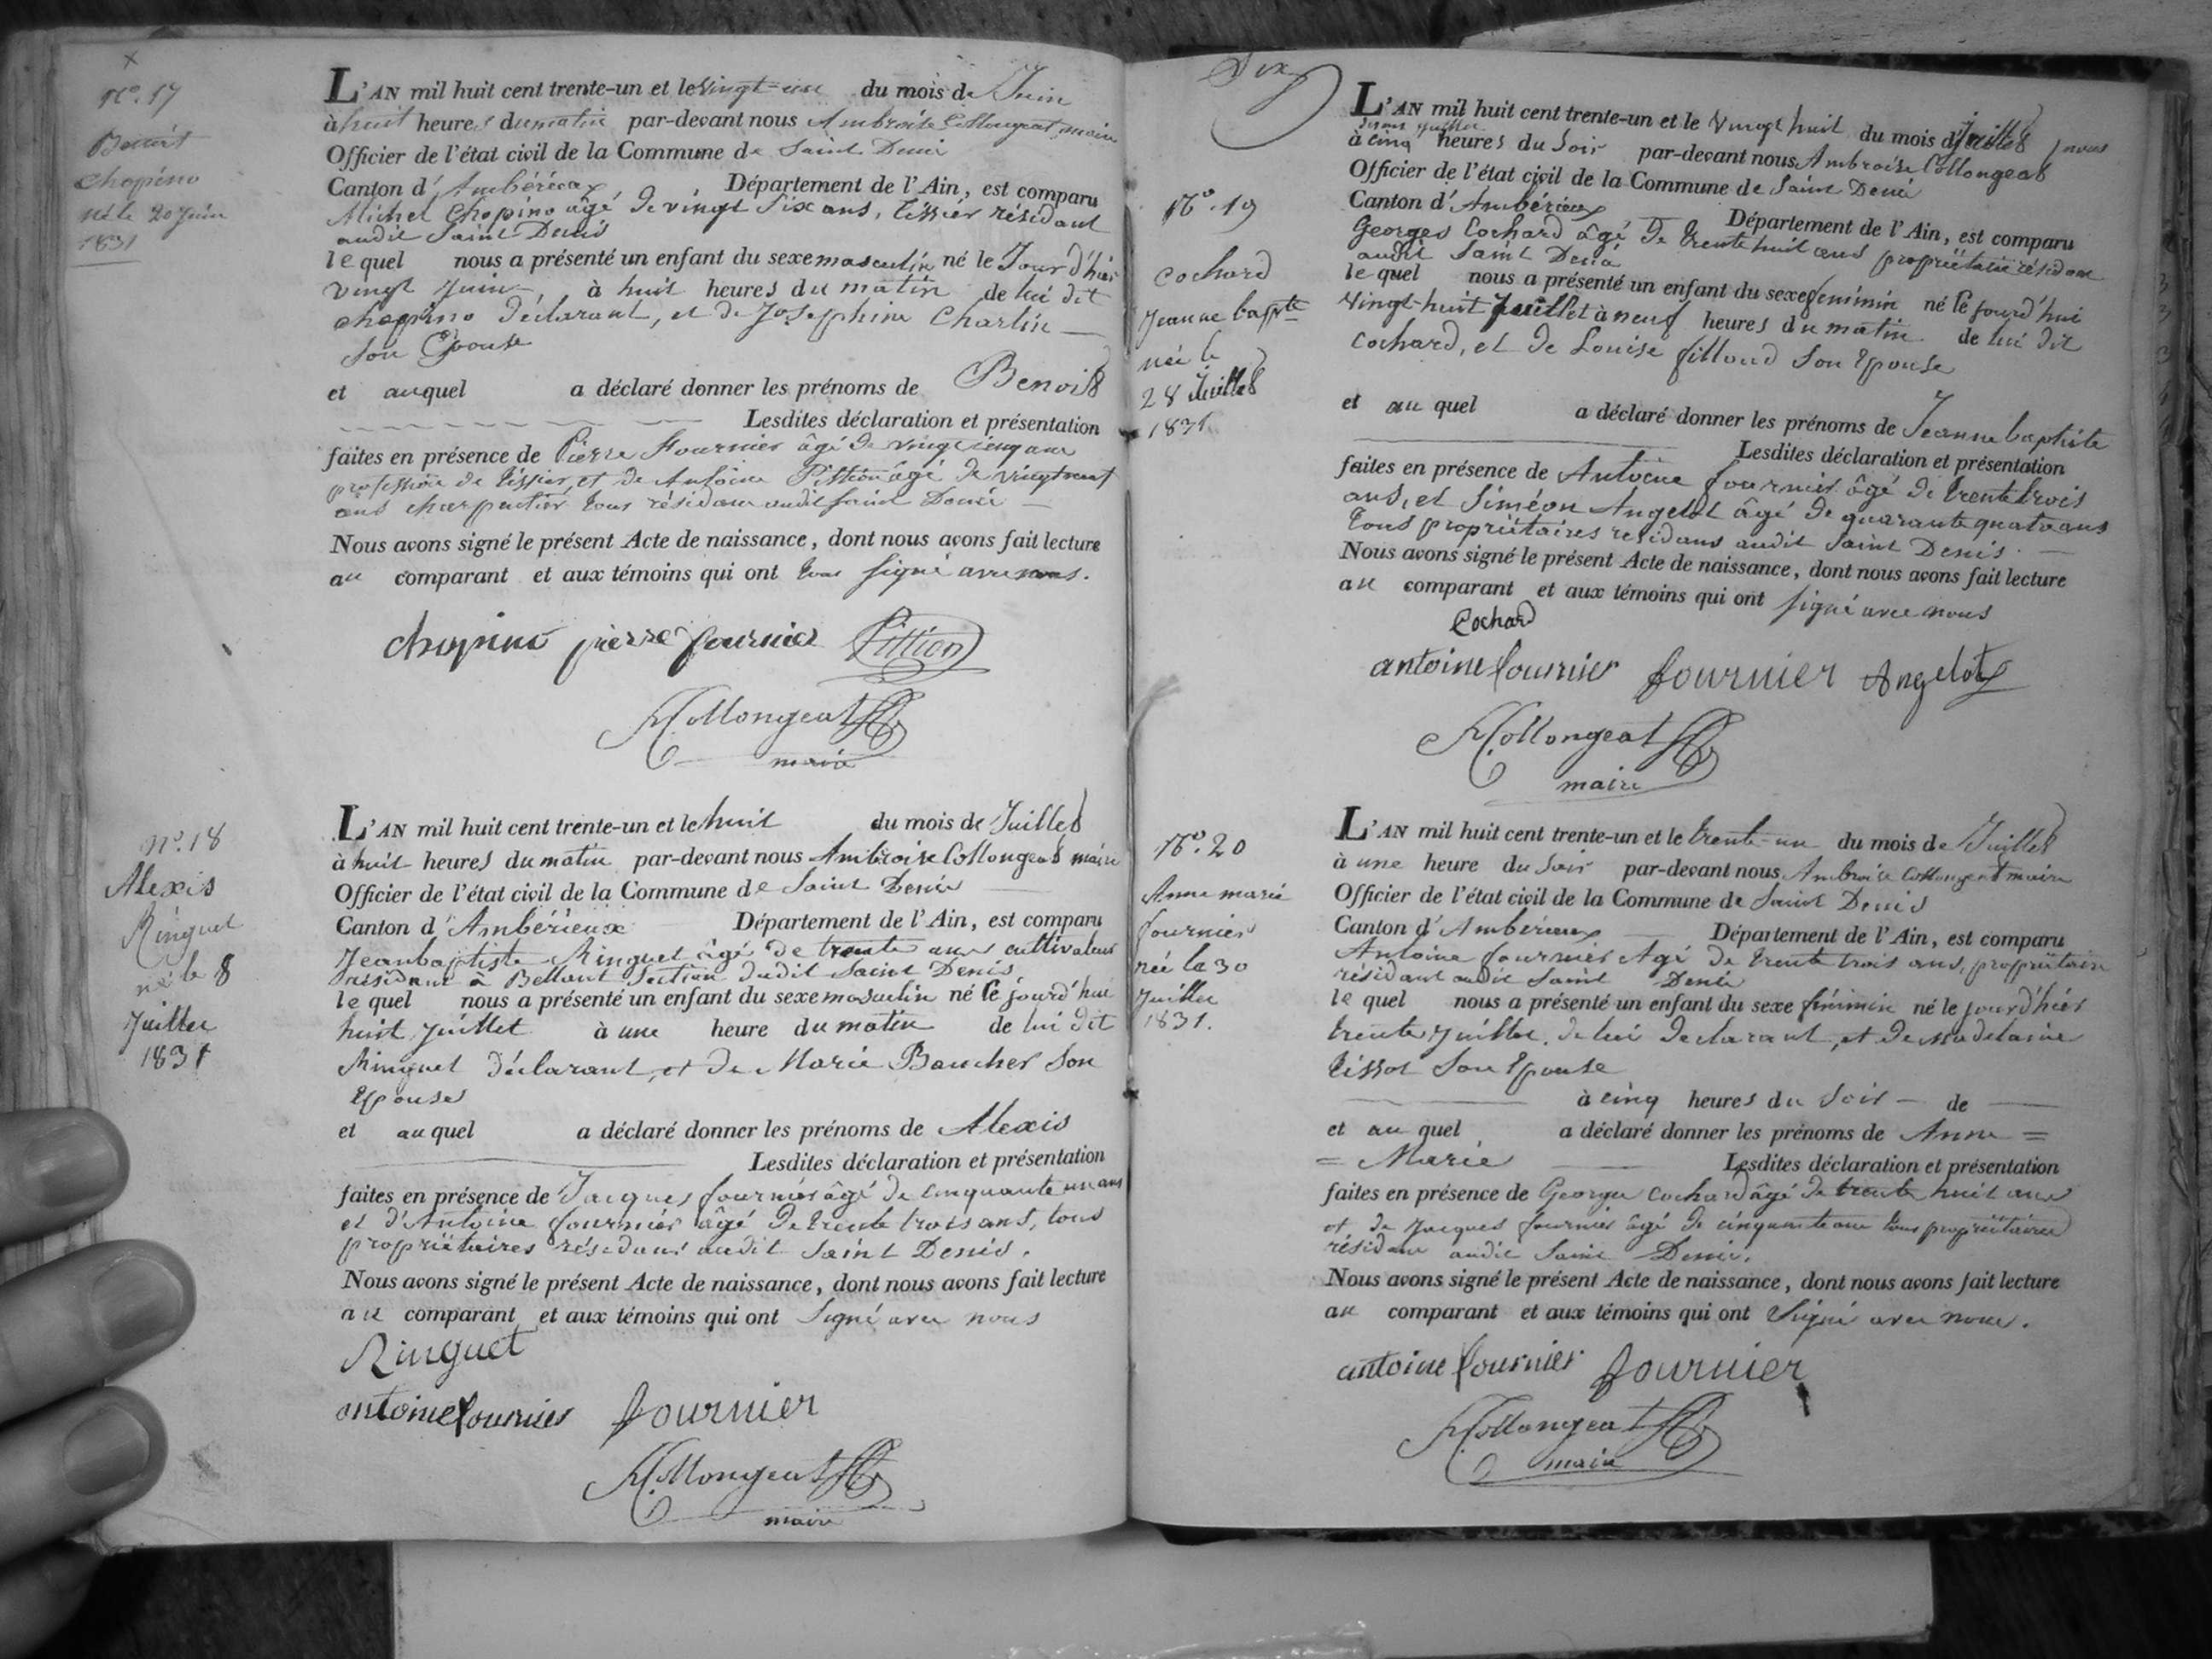 N.° 17
Benoit
Chopino
né le 20 Juin
1831
L'AN mil huit cent trente-un et le vingt-un du mois de Juin
à huit heures du matin par-devant nous Ambroise Collongeat maire
Officier de l'état civil de la Commune de Saint Denis
Canton d'Ambérieux Département de l'Ain, est comparu
Michel Chopino âgé de vingt Six ans, tissier résidant
audit Saint Denis
lequel nous a présenté un enfant du sexe masculin né le Jour d'hier
vingt Juin à huit heures du matin de lui dit
chopino déclarant, et de Josephine Charlin
son Epouse
et auquel a déclaré donner les prénoms de Benoit
Lesdites déclaration et présentation
faites en présence de Pierre Fournier âgé de vingt cinq ans
profession de tissier, et de Antoine Pittion âgé de vingt neuf
ans charpentier tous résidans audit Saint Denis
Nous avons signé le présent Acte de naissance, dont nous avons fait lecture
au comparant et aux témoins qui ont tous signé avec nous.
chopino pierre fournier Pittion
A Collongeat
maire
N.° 18
Alexis
Ringuet
né le 8
Juillet
1831
L'AN mil huit cent trente-un et le huit du mois de Juillet
à huit heures du matin par-devant nous Ambroise Collongeat maire
Officier de l'état civil de la Commune de Saint Denis
Canton d'Ambérieux Département de l'Ain, est comparu
Jeanbaptiste Ringuet âgé de trente ans cultivateur
résidant à Bellant Section dudit Saint Denis
lequel nous a présenté un enfant du sexe masculin né le jourd'hui
huit Juillet à une heure du matin de lui dit
Ringuet déclarant, et de Marie Baucher son
Epouse
et auquel a déclaré donner les prénoms de Alexis
Lesdites déclaration et présentation
faites en présence de Jacques fournier âgé de cinquante un ans
et d'Antoine fournier âgé de trente trois ans, tous
propriétaires résidans audit Saint Denis.
Nous avons signé le présent Acte de naissance, dont nous avons fait lecture
au comparant et aux témoins qui ont Signé avec nous
Ringuet
antoine fournier fournier
A Collongeat
maire
Six
N.° 19
Cochard
Jeanne bapte
née le
28 Juillet
1831
L'AN mil huit cent trente-un et le vingt huit du mois d Juillet
disons juillet
à cinq heures du Soir par-devant nous Ambroise Collongeat
Officier de l'état civil de la Commune de Saint Denis
Canton d'Ambérieux Département de l'Ain, est comparu
Georges Cochard âgé de trente huit ans propriétaire résidant
audit Saint Denis
lequel nous a présenté un enfant du sexe féminin né le jourd'hui
vingt-huit Juillet à neuf heures du matin de lui dit
Cochard, et de Louise filloud Son Epouse
et auquel a déclaré donner les prénoms de Jeanne baptiste
Lesdites déclaration et présentation
faites en présence de Antoine fournier âgé de trente trois
ans, et Siméon Angelot âgé de quarante quatre ans
tous propriétaires residans audit Saint Denis.
Nous avons signé le présent Acte de naissance, dont nous avons fait lecture
au comparant et aux témoins qui ont signé avec nous
Cochard
antoine fournier fournier Angelot
A Collongeat
maire
N.° 20
Anne marie
fournier
née le 30
Juillet
1831.
L'AN mil huit cent trente-un et le trente-un du mois de Juillet
à une heure du Soir par-devant nous Ambroise Collongeat maire
Officier de l'état civil de la Commune de Saint Denis
Canton d'Ambérieux Département de l'Ain, est comparu
Antoine fournier Agé de trente trois ans, propriétaire
résidant audit Saint Denis
lequel nous a présenté un enfant du sexe féminin né le jourd'hier
trente Juillet, de lui declarant, et de Madelaine
tissot Son Epouse
à cinq heures du Soir de
et auquel a déclaré donner les prénoms de Anne =
= Marie Lesdites déclaration et présentation
faites en présence de George Cochard âgé de trente huit ans
et de Jacques fournier âgé de cinquante ans tous propriétaires
résidans audit Saint Denis.
Nous avons signé le présent Acte de naissance, dont nous avons fait lecture
au comparant et aux témoins qui ont Signé avec nous.
antoine fournier fournier
A Collongeat
maire